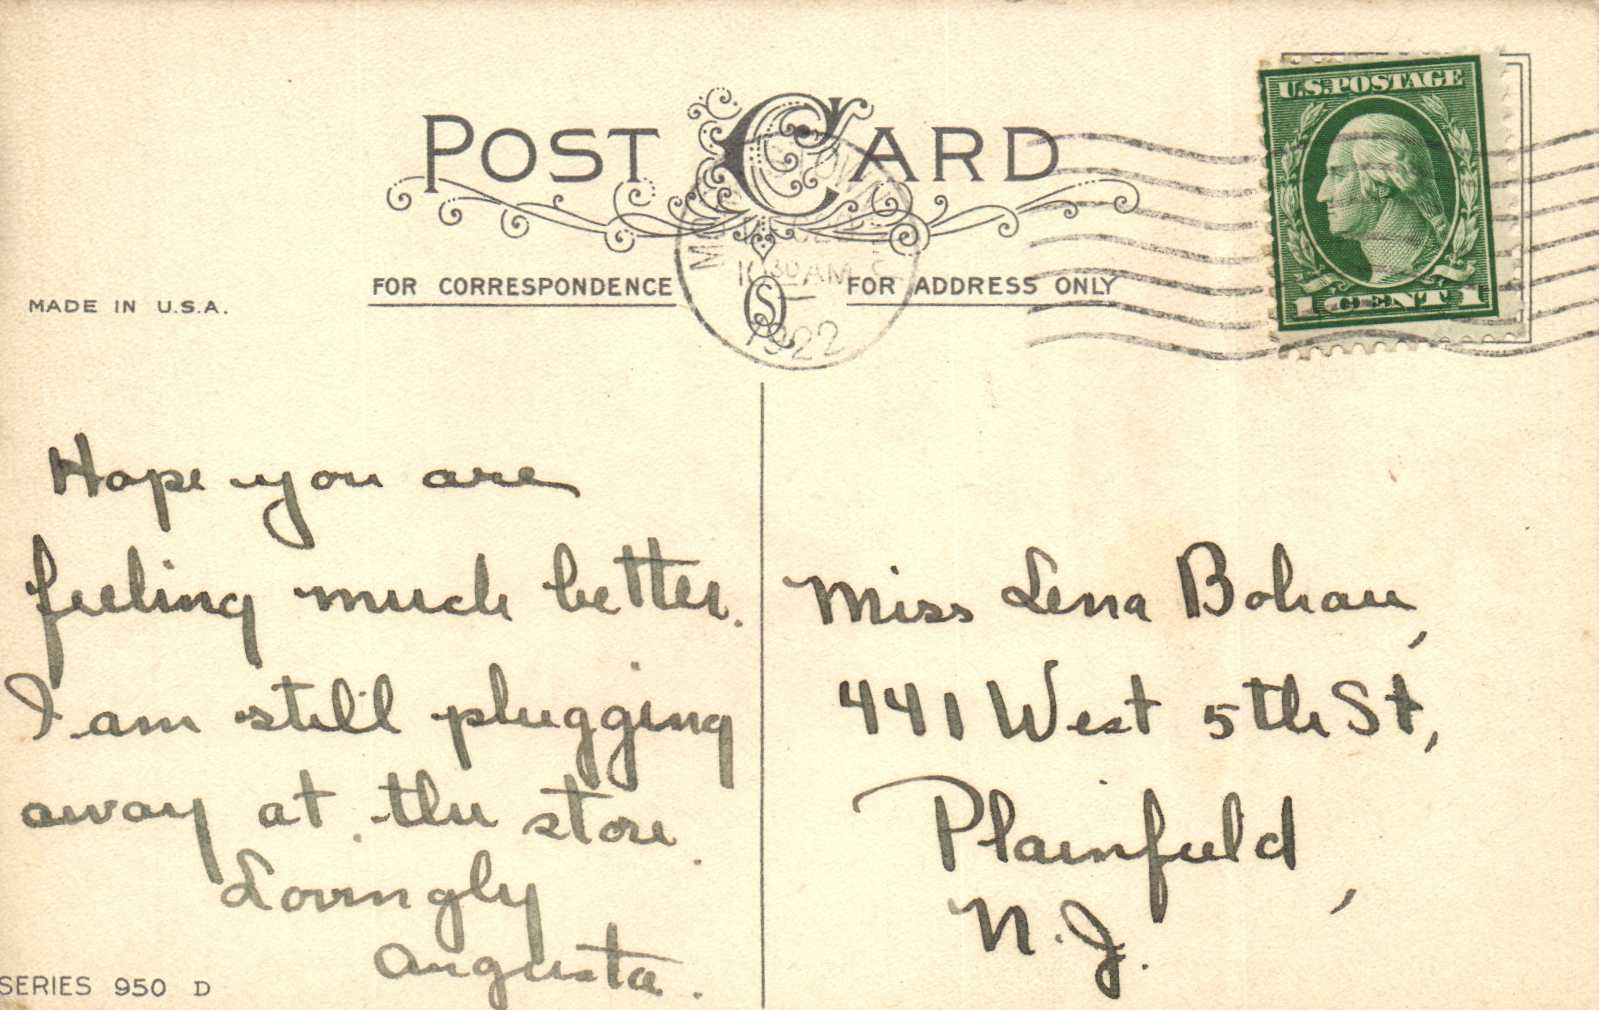 POST CARD
U.S. POSTAGE
1 CENT 1
FOR CORRESPONDENCE
FOR ADDRESS ONLY
10 30 AM
1922
MADE IN U.S.A.
Hope you are
feeling much better.
I am still plugging
away at the store.
Lovingly
Augusta.
Miss Lena Bohan,
441 West 5th St,
Plainfield,
N.J.
SERIES 950 D